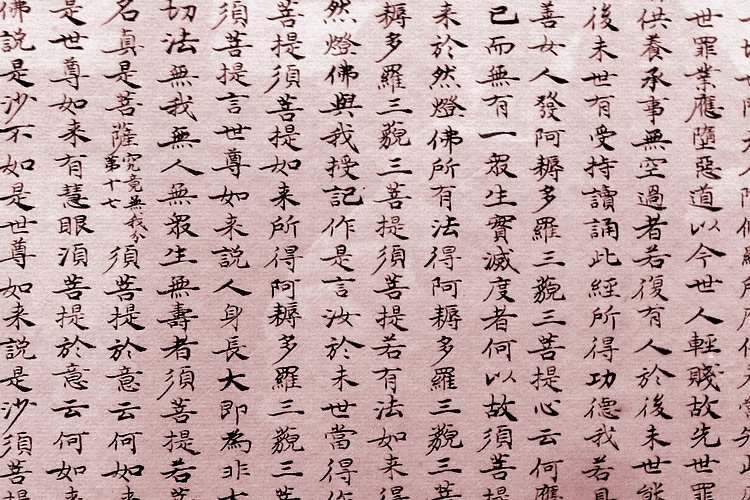 世罪業應墮惡道以今世人輕賤故先世罪
供養承事無空過者若復有人於後末世能
後末世有受持讀誦此經所得功德我若具
善女人發阿耨多羅三藐三菩提心云何應
已而無有一眾生實滅度者何以故須菩提
来於然燈佛所有法得阿耨多羅三藐三
耨多羅三藐三菩提須菩提若有法如来得
然燈佛與我授記作是言汝於未世當得作
菩提須菩提如来所得阿耨多羅三藐三
須菩提言世尊如来說人身長大即為非大
切法無我無人無眾生無壽者須菩提若
名真是菩薩究竟無我分第十七須菩提於意云何如来
是世尊如来有慧眼須菩提於意云何如
佛說是沙不如是世尊如来說是沙須菩提